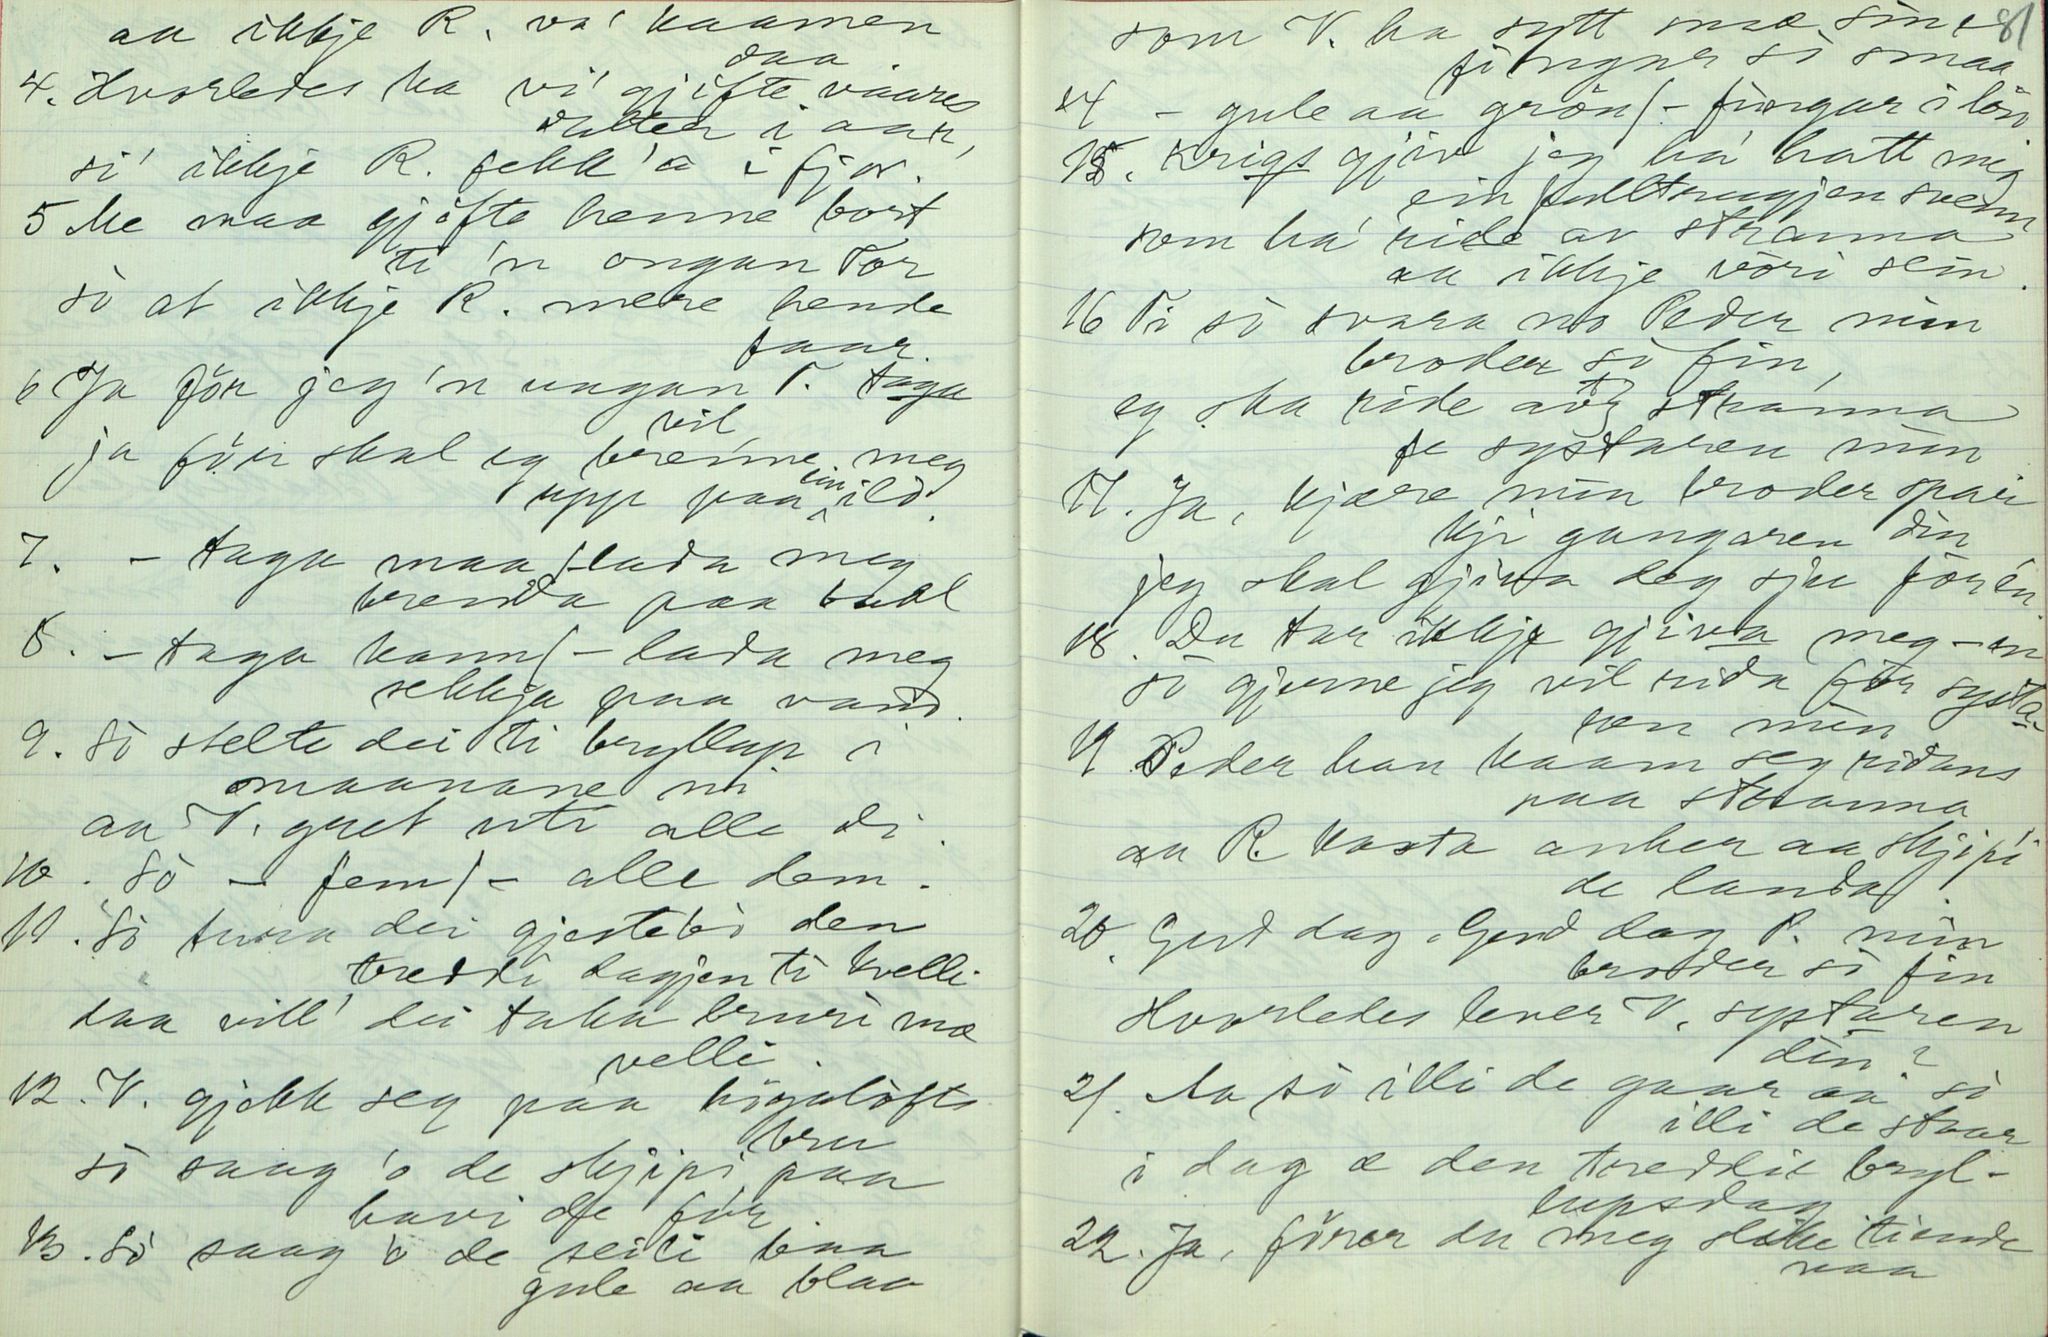 aa ikkje R. va' kaamen
daa
4. Hvorledes ka vi' gjifte vaares
datter i aar,
si' ikkje R. fekk 'a i fjor.
5 Me maa gjifte henne bort
ti 'n ongan Tor
so at ikkje R. mere hende
faar.
6 Ja för jeg 'n ungan T. taga
vil
ja förr skal eg brenne meg
upp paa ein ild.
7. – taga maa /– lada meg
brenda paa baal
8. – taga kann /– lada meg
sekkja paa vand.
9. So stelte dei ti bryllup i
maanane ni
aa V. gret uti alle di.
10. So – fem /– alle dem.
11. So tura dei gjestebo den
treddi dagjen ti kvelli
daa vill' dei taka bruri mæ
velli.
12. V. gjekk seg paa högelofts
bru
so saag 'o de skjipi paa
havi de för.
13. So saag 'o de seili baa
gule aa blaa
81
som V. ha sytt mæ sine
fingur so smaa
14 – gule aa grön /– fingar i lön
15. Krigs gjiv jeg ha' hatt mig
ein fulltrugjen svenn
som ha' ride av stranna
aa ikkje vori sein.
16 Ti so svara no Peder min
broder so fin,
eg ska ride av stranna
fe systaren min
17. Ja, kjære min broder spar
kji gangaren din
jeg skal gjiva deg sju för ein.
18. Du tar ikkje gjiva meg – ein
so gjerne jeg vil rida för systa-
ren min
19 Peder han kaam seg ridans
paa stranna
aa R. kasta anker aa skjipi
de landa.
20. God dag, God dag P. min
broder so fin
Hvorledes lever V. systaren
din?
21. Aa so illi de gaar aa so
illi de staar
i dag æ den treddie bryl-
lupsdag
22. Ja, förer du meg slike tiende
naa